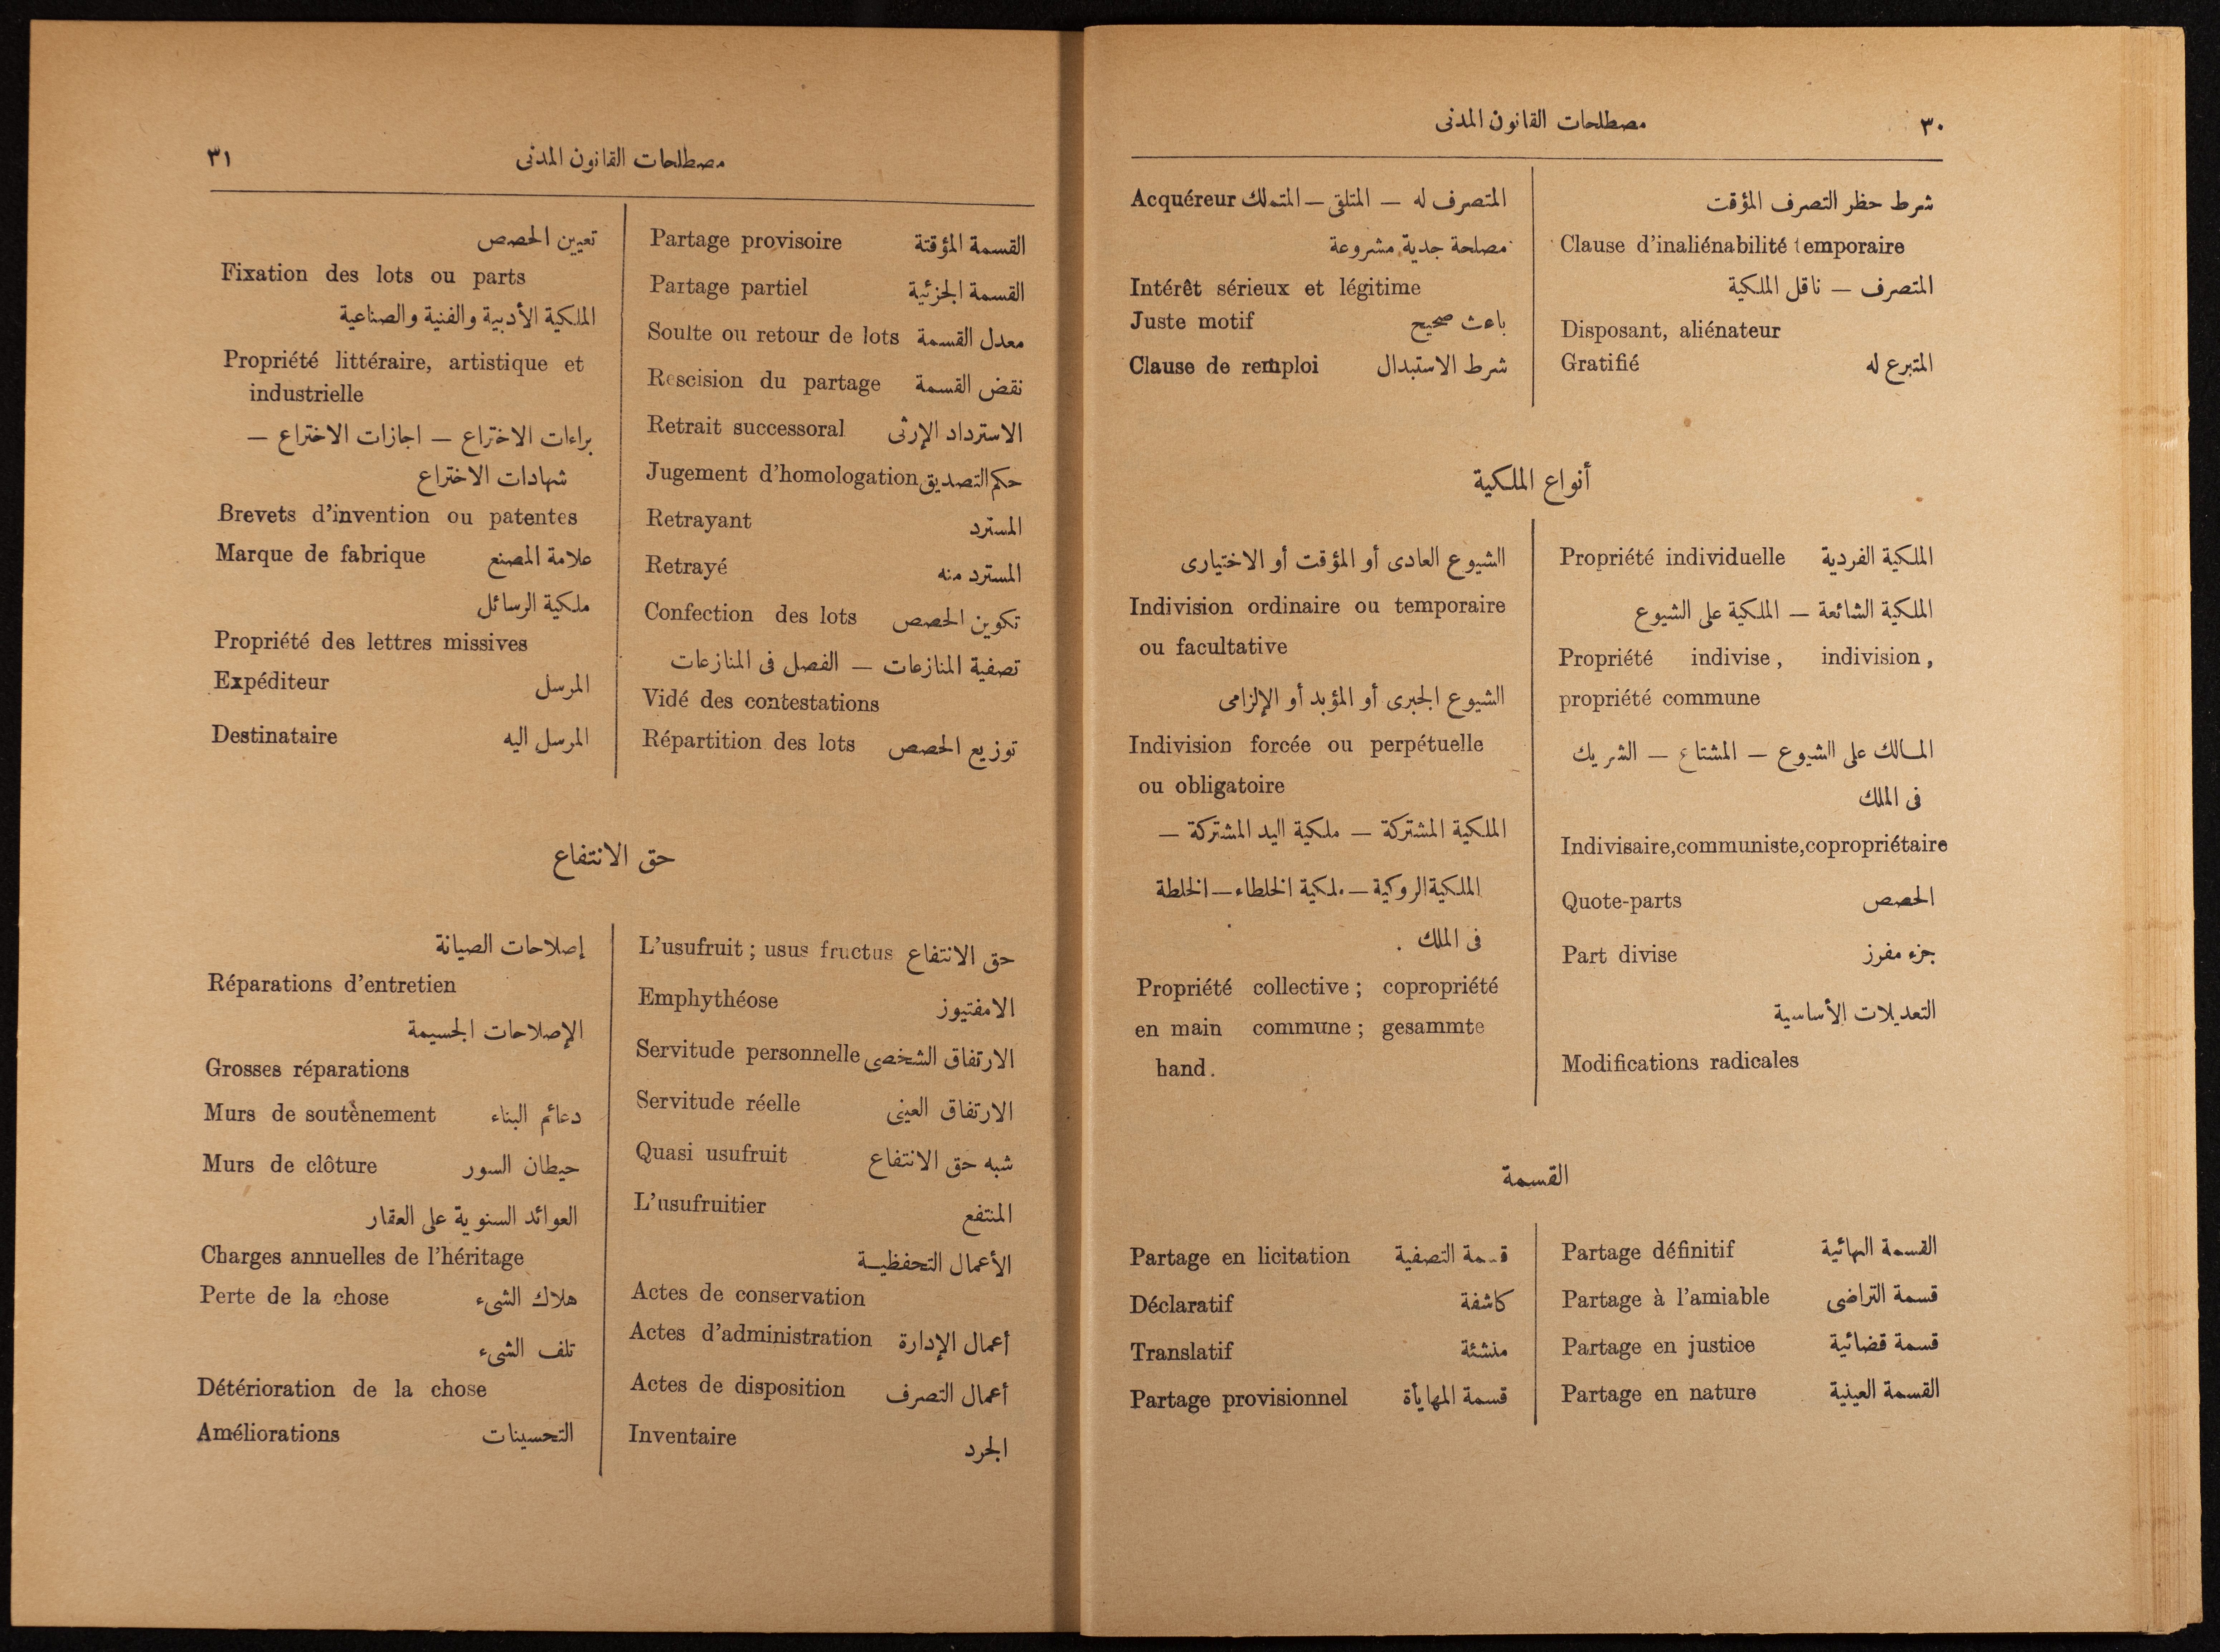 ٣٠
مصطلحات القانون المدنى
شرط حظر التصرف المؤقت
Clause d'inaliénabilité temporaire
المتصرف — ناقل الملكية
Disposant, aliénateur
Gratifié المتبرع له
Acquéreur المتصرف له — المتلقى — المتملك
مصلحة جدية مشروعة
Intérêt sérieux et légitime
Juste motif باعث صحيح
Clause de remploi شرط الاستبدال
أنواع الملكية
Propriété individuelle الملكية الفردية
الملكية الشائعة — الملكية على الشيوع
Propriété indivise, indivision,
propriété commune
المالك على الشيوع — المشتاع — الشريك
فى الملك
Indivisaire,communiste,copropriétaire
Quote-parts الحصص
Part divise جزء مفرز
التعديلات الأساسية
Modifications radicales
الشيوع العادى أو المؤقت أو الاختيارى
Indivision ordinaire ou temporaire
ou facultative
الشيوع الجبرى أو المؤبد أو الإلزامى
Indivision forcée ou perpétuelle
ou obligatoire
الملكية المشتركة — ملكية اليد المشتركة —
الملكية الروكية — ملكية الخلطاء — الخلطة
فى الملك .
Propriété collective ; copropriété
en main commune ; gesammte
hand.
القسمة
Partage définitif القسمة النهائية
Partage à l'amiable قسمة التراضى
Partage en justice قسمة قضائية
Partage en nature القسمة العينية
Partage en licitation قسمة التصفية
Déclaratif كاشفة
Translatif منشئة
Partage provisionnel قسمة المهايأة
مصطلحات القانون المدنى
٣١
Partage provisoire القسمة المؤقتة
Partage partiel القسمة الجزئية
Soulte ou retour de lots معدل القسمة
Rescision du partage نقض القسمة
Retrait successoral الاسترداد الإرثى
Jugement d'homologation حكم التصديق
Retrayant المسترد
Retrayé المسترد منه
Confection des lots تكوين الحصص
تصفية المنازعات — الفصل فى المنازعات
Vidé des contestations
Répartition des lots توزيع الحصص
تعيين الحصص
Fixation des lots ou parts
الملكية الأدبية والفنية والصناعية
Propriété littéraire, artistique et
industrielle
براءات الاختراع — اجازات الاختراع —
شهادات الاختراع
Brevets d'invention ou patentes
Marque de fabrique علامة المصنع
ملكية الرسائل
Propriété des lettres missives
Expéditeur المرسل
Destinataire المرسل اليه
حق الانتفاع
L'usufruit ; usus fructus حق الانتفاع
Emphythéose الامفتيوز
Servitude personnelle الارتفاق الشخصى
Servitude réelle الارتفاق العينى
Quasi usufruit شبه حق الانتفاع
L'usufruitier المنتفع
الأعمال التحفظيـة
Actes de conservation
Actes d'administration أعمال الإدارة
Actes de disposition أعمال التصرف
Inventaire الجرد
إصلاحات الصيانة
Réparations d'entretien
الإصلاحات الجسيمة
Grosses réparations
Murs de soutènement دعائم البناء
Murs de clôture حيطان السور
العوائد السنوية على العقار
Charges annuelles de l'héritage
Perte de la chose هلاك الشىء
تلف الشىء
Détérioration de la chose
Améliorations التحسينات